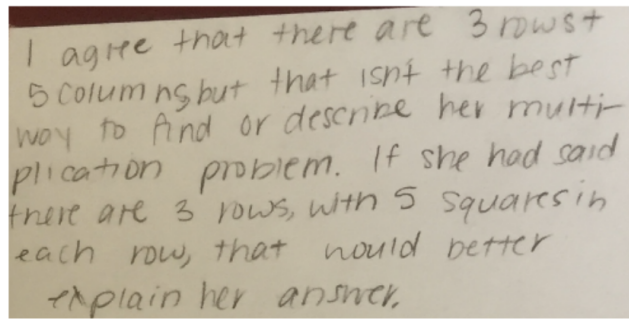 I agree that there are 3 rows +
5 columns, but that isn't the best
way to find or describe her multi-
plication problem. If she had said
there are 3 rows, with 5 squares in
each row, that would better
explain her answer.